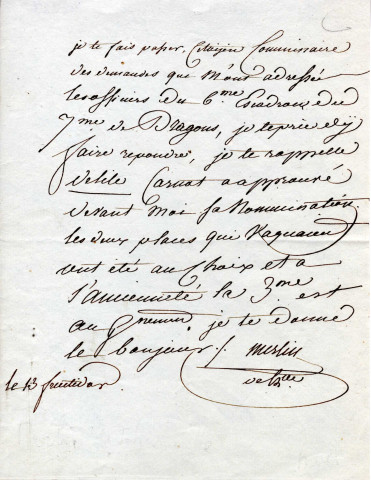 je te fais passer, Citoyen Commissaire
des demandes que m'ont adressé
les officiers du 6me Escadron du
7me de Dragons, je te prie d'y
faire repondre, je te rappelle
Carnat a approuvé
devant moi sa Nomination
les deux places que Vaquaien
ont été au Choix et a
l'ancienneté la 3me est
au je te donne
le bonjour ./. merlin
le 13 fructidor